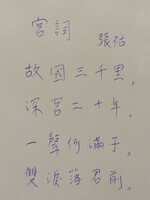 宮詞
張祜
故國三千里,
深宮二十年,
一聲何滿子,
雙淚落君前。